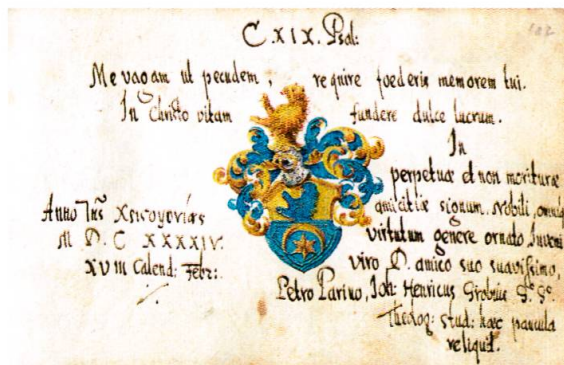 CXIX. Psal:
102
Me vagam ut pecudem; require foederis memorem tui.
In Christo vitam fundere dulce lucrum.
In
perpetuae et non moriturae
amicitiae signum. Nobili, omniq
virtutum genere ornato, Juveni
viro D. amico suo suavissimo,
Petro Parino, Joh: Henricus Grobius
Theolog: stud: haec paucula
reliquit.
Anno
M D C XXXXIV.
XVIII Calend: Febr: